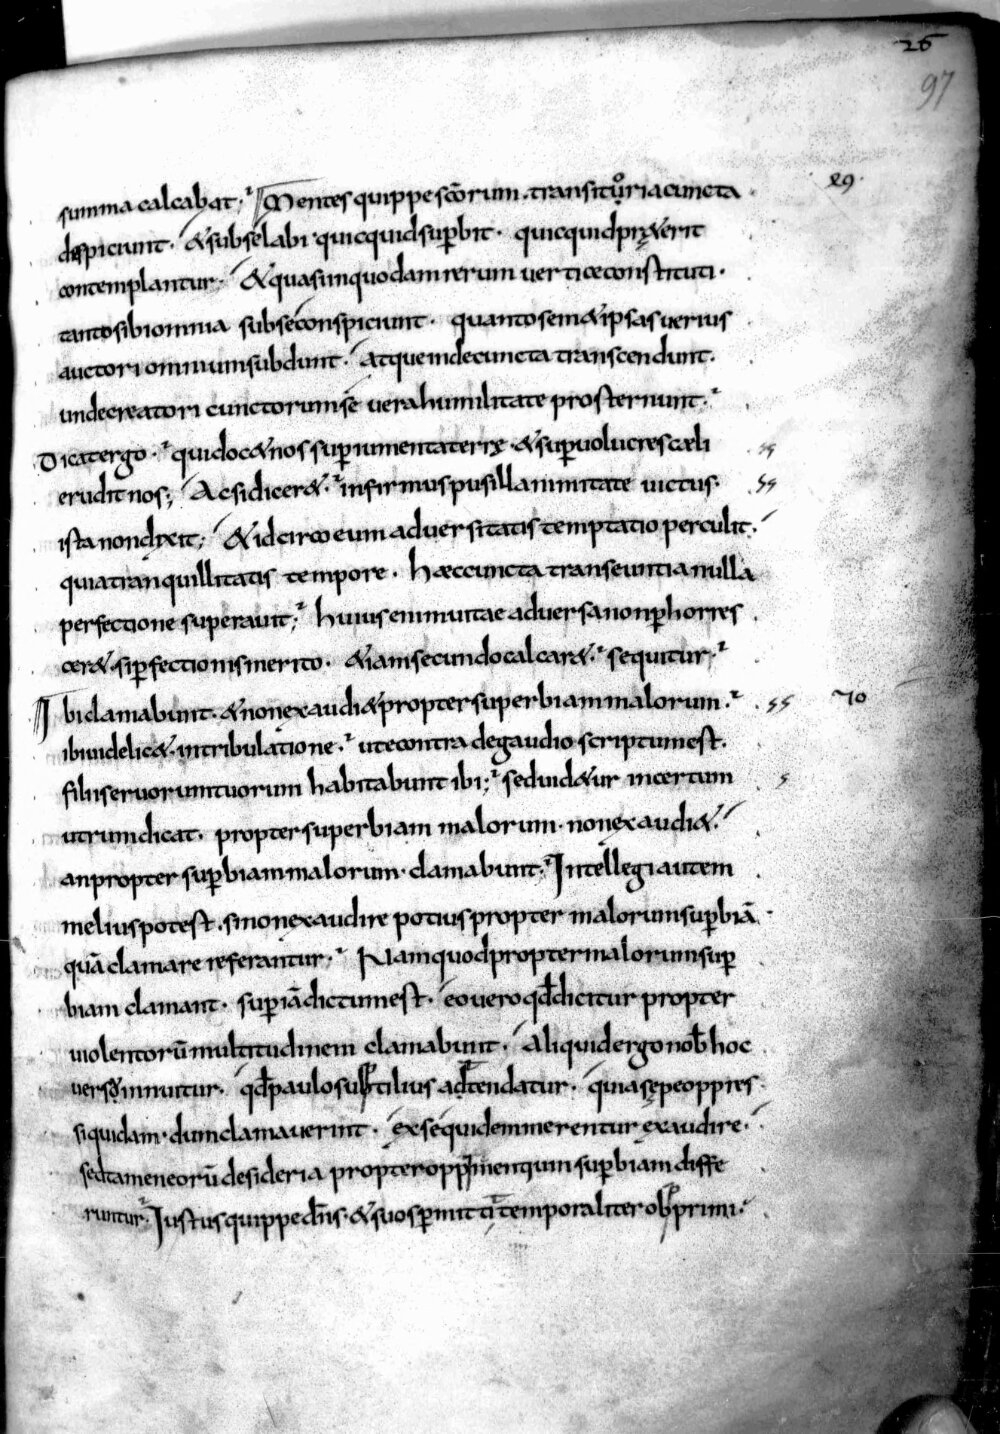 26
97
summa calcabat; Mentes quippe scōrum. transituria cuncta
29.
despiciunt. & subse labi quicquid suꝑbit. quicquid prę&erit
contemplantur. & quasi in quodam rerum vertice constituti.
tanto sibi omnia subse conspiciunt. quanto sem&ipsas verius
auctori omnium subdunt. Atque inde cuncta transcendunt.
unde creatori cunctorum se vera humilitate prosternunt.
Dicat ergo. qui doc& nos suꝑ iumenta terrę. & suꝑ volucres cæli
erudit nos; Ac si dicer&. infirmus pusillanimitate victus.
ista non dixit; & idcirco eum adversitatis temptatio perculit.
quia tranquillitatis tempore. hæc cuncta transeuntia nulla
perfectione superavit; huius enim vitae adversa non ꝑhorres
cer&. si ꝑfectionis merito. &iam secundo calcar&. sequitur.
Ibi clamabunt. & non exaudi& propter superbiam malorum.
70
ibi videlic&. in tribulatione. ut econtra de gaudio scriptum est.
filii servorum tuorum habitabunt ibi; sed vid&ur incertum
utrum dicat. propter superbiam malorum. non exaudi&.
an propter suꝑbiam malorum. clamabunt. Intellegi autem
melius potest. si non exaudire potius propter malorum suꝑbiā
quā clamare referantur. Nam quod propter malorum suꝑ
biam clamant. suꝑ iā dictum est. eo vero qđ dicitur propter
violentorū multitudinem clamabunt. Aliquid ergo nob̄ hoc
verso innuitur. qđ paulo subtilius adtendatur. quia sępe oppres
si quidam. dum clamaverint. ex se quidem merentur exaudire.
sed tamen eorū desideria propter opprimentium suꝑbiam diffe
runtur. Iustus quippe dn̄s. & suos ꝑmittit temporaliter obprimi.